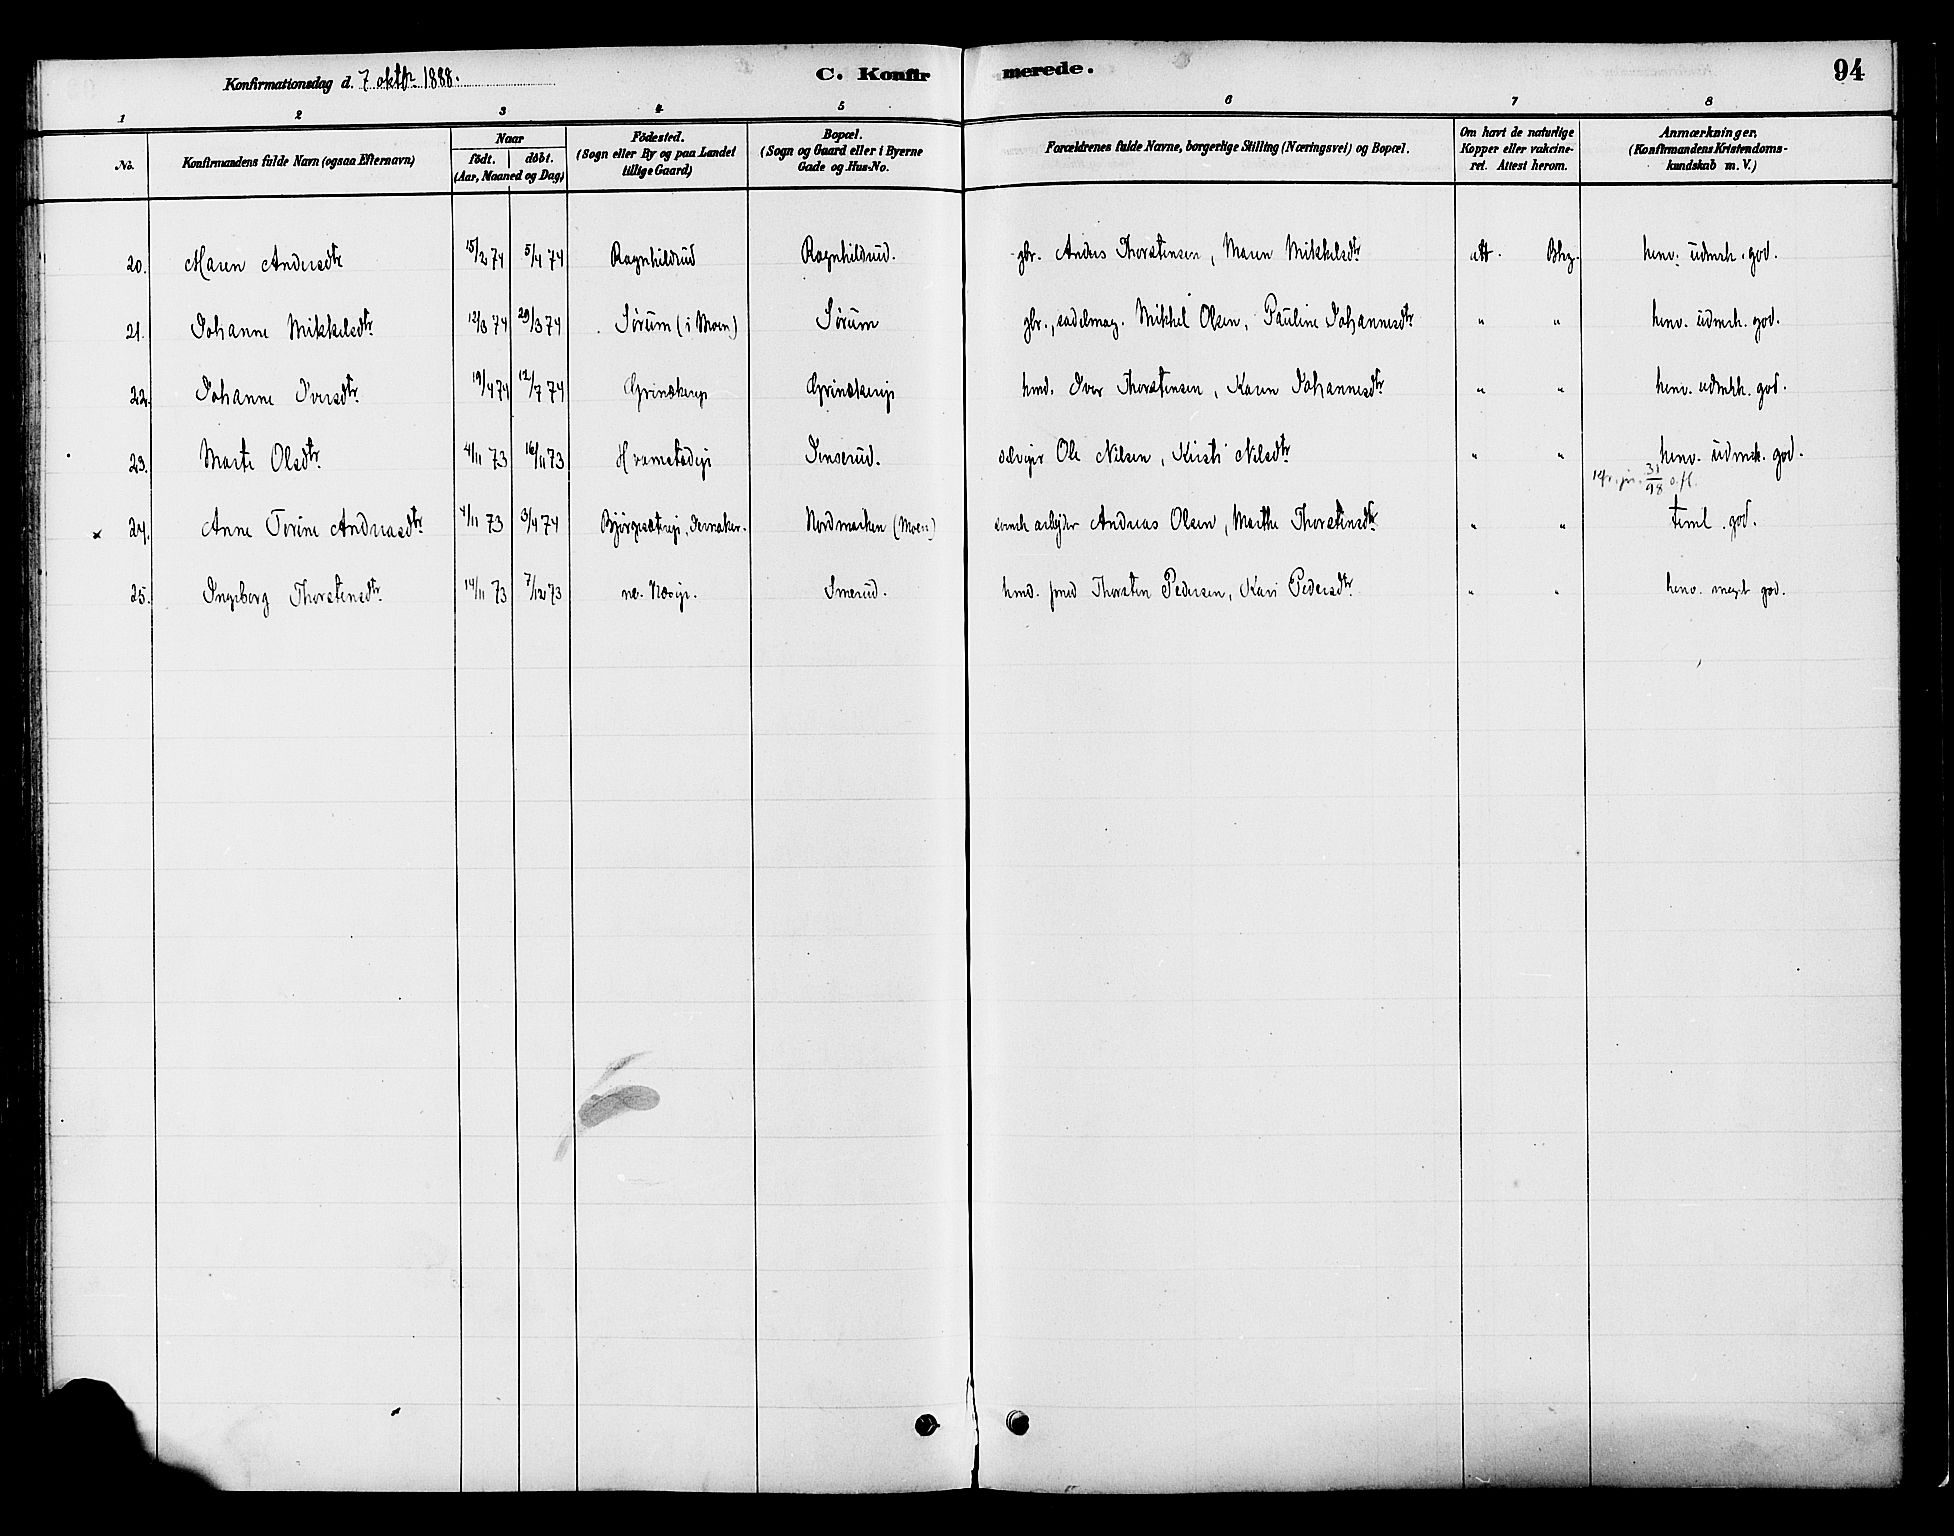 Konfirmationsdag d. 7 oktbr. 1888.
C. Konfirmerede.
94
1 2 3 4 5 6 7 8
No. | Konfirmandens fulde Navn (ogsaa Efternavn) | Naar født. døbt. (Aar, Maaned og Dag) | Fødested. (Sogn eller By og paa Landet tillige Gaard) | Bopæl. (Sogn og Gaard eller i Byerne Gade og Hus-No. | Forældrenes fulde Navne, borgerlige Stilling (Næringsvei) og Bopæl. | Om havt de naturlige Kopper eller vakcineret. Attest herom. | Anmærkninger, (Konfirmandens Kristendomskundskab m. V.)
20. Maren Andersdtr 15/2 74 5/4 74 Ragnhildrud Ragnhildrud. gbr. Anders Thorstensen, Maren Mikkelsdtr att. Bhg. henv. udmrk. god.
21. Johanne Mikkelsdtr 12/3 74 29/3 74 Sørum (i Moen) Sørum gbr., sadelmag. Mikkel Olsen, Pauline Johannesdtr " " henv. udmrk. god.
22. Johanne Iversdtr. 19/4 74 12/7 74 Grinakereje Grinakereje hmd. Iver Thorstensen, Karen Johannesdtr " " henv. udmrk. god.
23. Marte Olsdtr. 4/11 73 16/11 73 Hvamstadeje Jenserud. Ole Nilsen, Kirsti Nilsdtr " " henv. udmrk. god.
31/98
x 24. Anne Torine Andreasdtr 4/11 73 3/4 74 Bjørgesæterejе, Jevnaker. Nordmarken (Moen) Andreas Olsen, Marthe Thorstensdtr " " teml. god.
25. Ingeborg Thorstensdtr. 14/11 73 7/12 73 Smerud. hmd. Thorsten Pedersen, Kari Pedersdtr. " " henv. meget god.